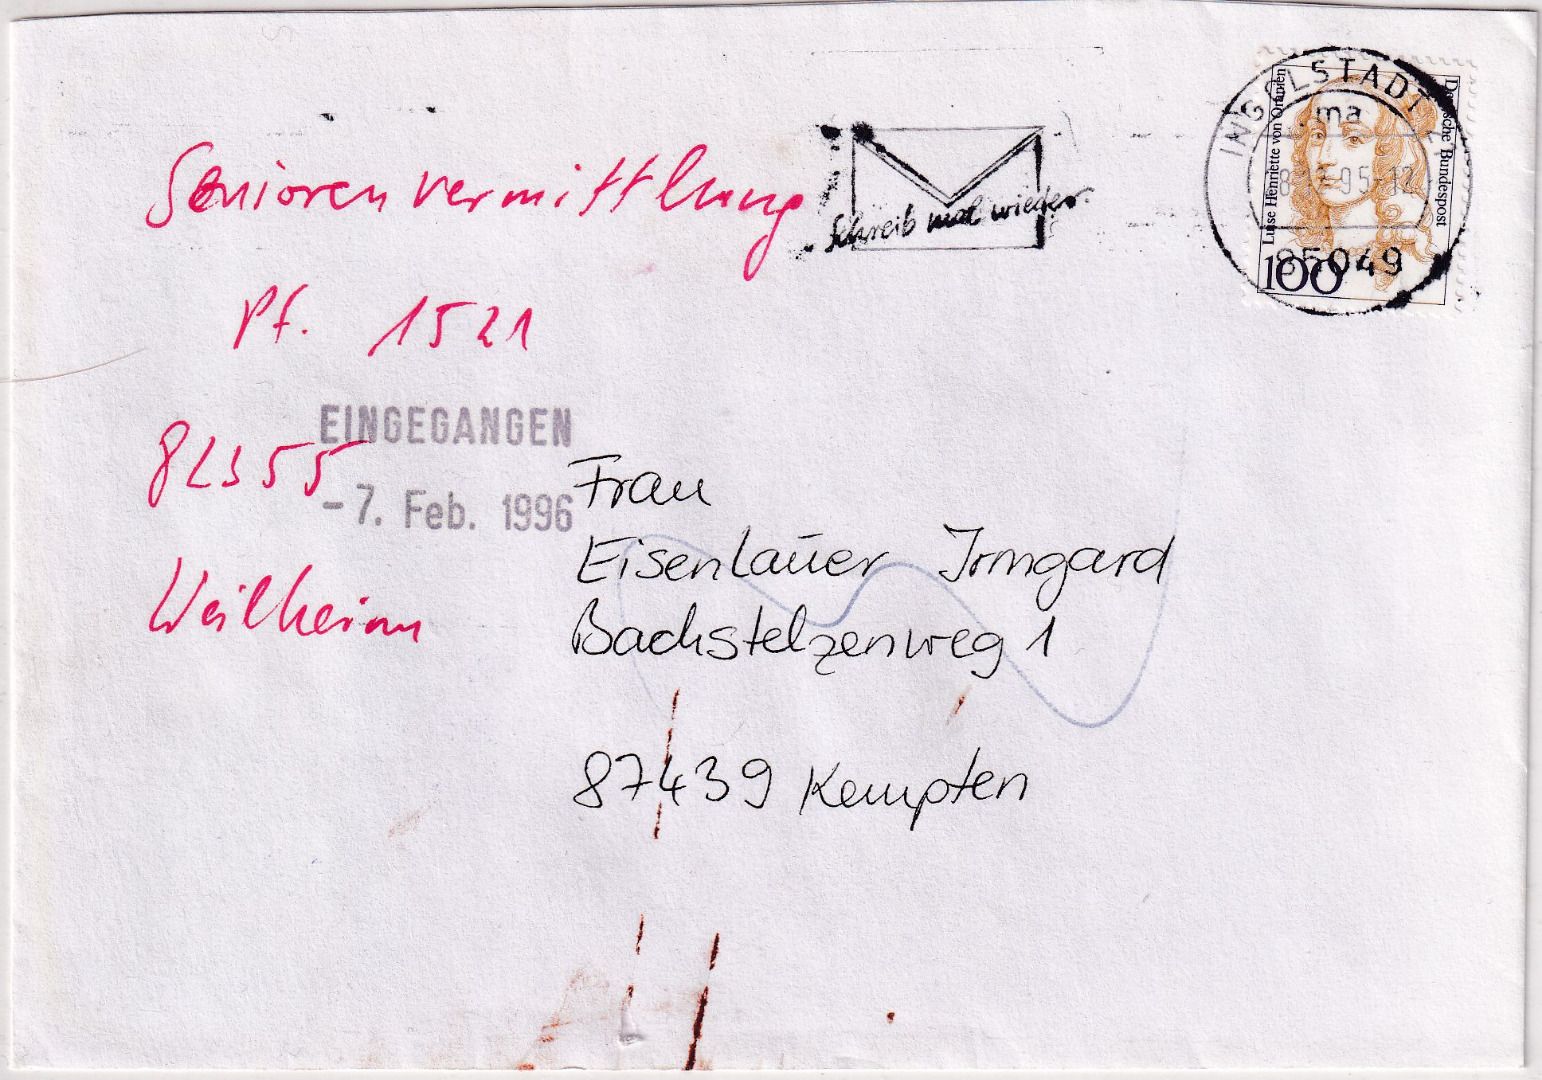 Seniorenvermittlung
Pf. 1521
82355
Weilheim
EINGEGANGEN
-7. Feb. 1996
Schreib mal wieder.
INGOLSTADT
ma
85049
Luise Henriette von Oranien
Deutsche Bundespost
100
Frau
Eisenlauer Irmgard
Bachstelzenweg 1
87439 Kempten